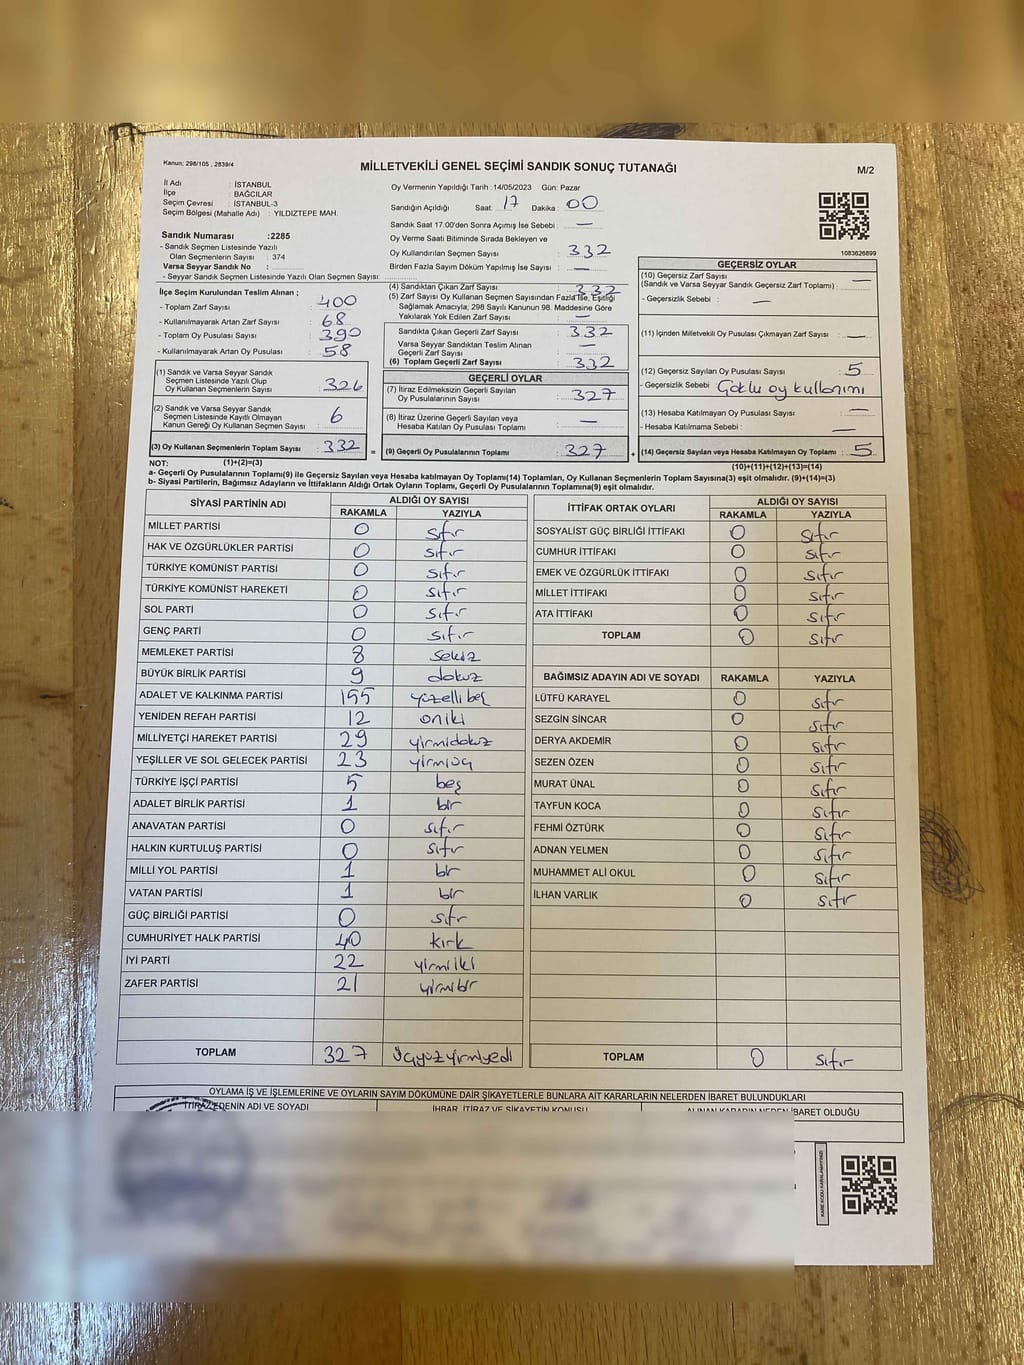 Kanun: 298/105 , 2839/4
MİLLETVEKİLİ GENEL SEÇİMİ SANDIK SONUÇ TUTANAĞI
M/2
İl Adı : İSTANBUL
İlçe : BAĞCILAR
Seçim Çevresi : İSTANBUL-3
Seçim Bölgesi (Mahalle Adı) : YILDIZTEPE MAH.
Oy Vermenin Yapıldığı Tarih :14/05/2023 Gün: Pazar
Sandığın Açıldığı Saat: 17 Dakika : 00
Sandık Saat 17:00'den Sonra Açımış İse Sebebi : —
Oy Verme Saati Bitiminde Sırada Bekleyen ve
Oy Kullandırılan Seçmen Sayısı : 332
Birden Fazla Sayım Döküm Yapılmış İse Sayısı : —
1083626899
Sandık Numarası :2285
- Sandık Seçmen Listesinde Yazılı
Olan Seçmenlerin Sayısı : 374
Varsa Seyyar Sandık No :
- Seyyar Sandık Seçmen Listesinde Yazılı Olan Seçmen Sayısı:
İlçe Seçim Kurulundan Teslim Alınan ;
- Toplam Zarf Sayısı : 400
- Kullanılmayarak Artan Zarf Sayısı : 68
- Toplam Oy Pusulası Sayısı : 390
- Kullanılmayarak Artan Oy Pusulası : 58
(1) Sandık ve Varsa Seyyar Sandık
Seçmen Listesinde Yazılı Olup
Oy Kullanan Seçmenlerin Sayısı : 326
(2) Sandık ve Varsa Seyyar Sandık
Seçmen Listesinde Kayıtlı Olmayan
Kanun Gereği Oy Kullanan Seçmen Sayısı : 6
(3) Oy Kullanan Seçmenlerin Toplam Sayısı : 332
(1)+(2)=(3)
(4) Sandıktan Çıkan Zarf Sayısı : 332
(5) Zarf Sayısı Oy Kullanan Seçmen Sayısından Fazla İse, Eşitliği
Sağlamak Amacıyla; 298 Sayılı Kanunun 98. Maddesine Göre
Yakılarak Yok Edilen Zarf Sayısı : —
Sandıkta Çıkan Geçerli Zarf Sayısı : 332
Varsa Seyyar Sandıktan Teslim Alınan
Geçerli Zarf Sayısı : —
(6) Toplam Geçerli Zarf Sayısı : 332
GEÇERLİ OYLAR
(7) İtiraz Edilmeksizin Geçerli Sayılan
Oy Pusulalarının Sayısı : 327
(8) İtiraz Üzerine Geçerli Sayılan veya
Hesaba Katılan Oy Pusulası Toplamı : —
= (9) Geçerli Oy Pusulalarının Toplamı : 327 +
GEÇERSİZ OYLAR
(10) Geçersiz Zarf Sayısı
(Sandık ve Varsa Seyyar Sandık Geçersiz Zarf Toplamı) : —
- Geçersizlik Sebebi : —
(11) İçinden Milletvekili Oy Pusulası Çıkmayan Zarf Sayısı : —
(12) Geçersiz Sayılan Oy Pusulası Sayısı : 5
- Geçersizlik Sebebi : Çoklu oy kullanımı
(13) Hesaba Katılmayan Oy Pusulası Sayısı : —
- Hesaba Katılmama Sebebi : —
(14) Geçersiz Sayılan veya Hesaba Katılmayan Oy Toplamı : 5
(10)+(11)+(12)+(13)=(14)
NOT:
a- Geçerli Oy Pusulalarının Toplamı(9) ile Geçersiz Sayılan veya Hesaba katılmayan Oy Toplamı(14) Toplamları, Oy Kullanan Seçmenlerin Toplam Sayısına(3) eşit olmalıdır. (9)+(14)=(3)
b- Siyasi Partilerin, Bağımsız Adayların ve İttifakların Aldığı Ortak Oyların Toplamı, Geçerli Oy Pusulalarının Toplamına(9) eşit olmalıdır.
SİYASİ PARTİNİN ADI ALDIĞI OY SAYISI
RAKAMLA YAZIYLA
MİLLET PARTİSİ 0 sıfır
HAK VE ÖZGÜRLÜKLER PARTİSİ 0 sıfır
TÜRKİYE KOMÜNİST PARTİSİ 0 sıfır
TÜRKİYE KOMÜNİST HAREKETİ 0 sıfır
SOL PARTİ 0 sıfır
GENÇ PARTİ 0 sıfır
MEMLEKET PARTİSİ 8 sekiz
BÜYÜK BİRLİK PARTİSİ 9 dokuz
ADALET VE KALKINMA PARTİSİ 155 yüzellibeş
YENİDEN REFAH PARTİSİ 12 oniki
MİLLİYETÇİ HAREKET PARTİSİ 29 yirmidokuz
YEŞİLLER VE SOL GELECEK PARTİSİ 23 yirmiüç
TÜRKİYE İŞÇİ PARTİSİ 5 beş
ADALET BİRLİK PARTİSİ 1 bir
ANAVATAN PARTİSİ 0 sıfır
HALKIN KURTULUŞ PARTİSİ 0 sıfır
MİLLİ YOL PARTİSİ 1 bir
VATAN PARTİSİ 1 bir
GÜÇ BİRLİĞİ PARTİSİ 0 sıfır
CUMHURİYET HALK PARTİSİ 40 kırk
İYİ PARTİ 22 yirmiiki
ZAFER PARTİSİ 21 yirmibir
TOPLAM 327 üçyüzyirmiyedi
İTTİFAK ORTAK OYLARI ALDIĞI OY SAYISI
RAKAMLA YAZIYLA
SOSYALİST GÜÇ BİRLİĞİ İTTİFAKI 0 sıfır
CUMHUR İTTİFAKI 0 sıfır
EMEK VE ÖZGÜRLÜK İTTİFAKI 0 sıfır
MİLLET İTTİFAKI 0 sıfır
ATA İTTİFAKI 0 sıfır
TOPLAM 0 sıfır
BAĞIMSIZ ADAYIN ADI VE SOYADI RAKAMLA YAZIYLA
LÜTFÜ KARAYEL 0 sıfır
SEZGİN SİNCAR 0 sıfır
DERYA AKDEMİR 0 sıfır
SEZEN ÖZEN 0 sıfır
MURAT ÜNAL 0 sıfır
TAYFUN KOCA 0 sıfır
FEHMİ ÖZTÜRK 0 sıfır
ADNAN YELMEN 0 sıfır
MUHAMMET ALİ OKUL 0 sıfır
İLHAN VARLIK 0 sıfır
TOPLAM 0 sıfır
OYLAMA İŞ VE İŞLEMLERİNE VE OYLARIN SAYIM DÖKÜMÜNE DAİR ŞİKAYETLERLE BUNLARA AİT KARARLARIN NELERDEN İBARET BULUNDUKLARI
İTİRAZ EDENİN ADI VE SOYADI İHBAR, İTİRAZ VE ŞİKAYETİN KONUSU ALINAN KARARIN NEDEN İBARET OLDUĞU